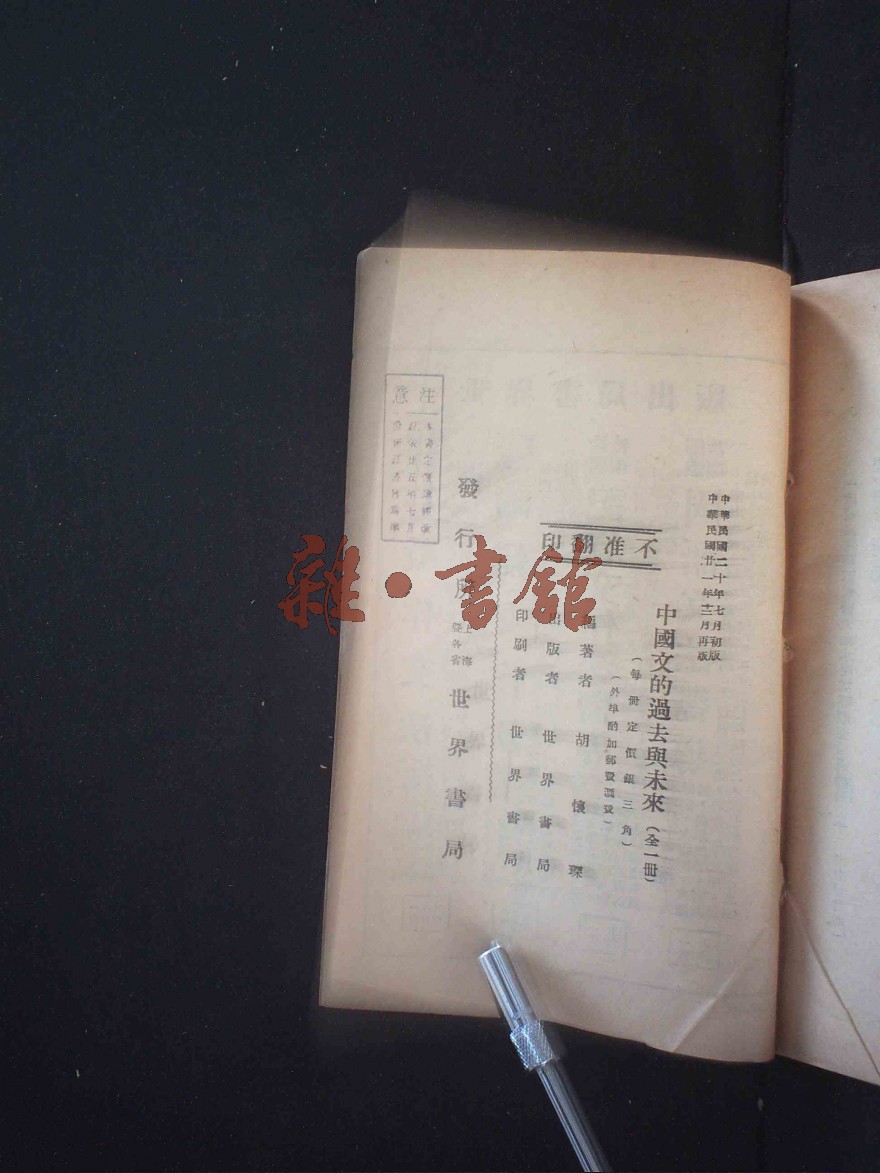 中華民國二十年七月初版
中華民國廿一年十二月再版
中國文的過去與未來（全一冊）
（每冊定價銀三角）
（外埠酌加郵費匯費）
不准翻印
編著者 胡懷琛
出版者 世界書局
印刷者 世界書局
發行所 上海暨各省 世界書局
注意
雜·書館